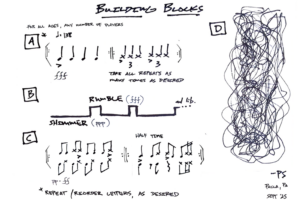 BUILDING BLOCKS
FOR ALL AGES, ANY NUMBER OF PLAYERS
D
A
fff
3 3
TAKE ALL REPEATS AS
MANY TIMES AS DESIRED
B
RUMBLE (fff)
SHIMMER (ppp)
C
HALF TIME
pp - ff
* REPEAT / REORDER LETTERS, AS DESIRED
-PS
SEPT '25